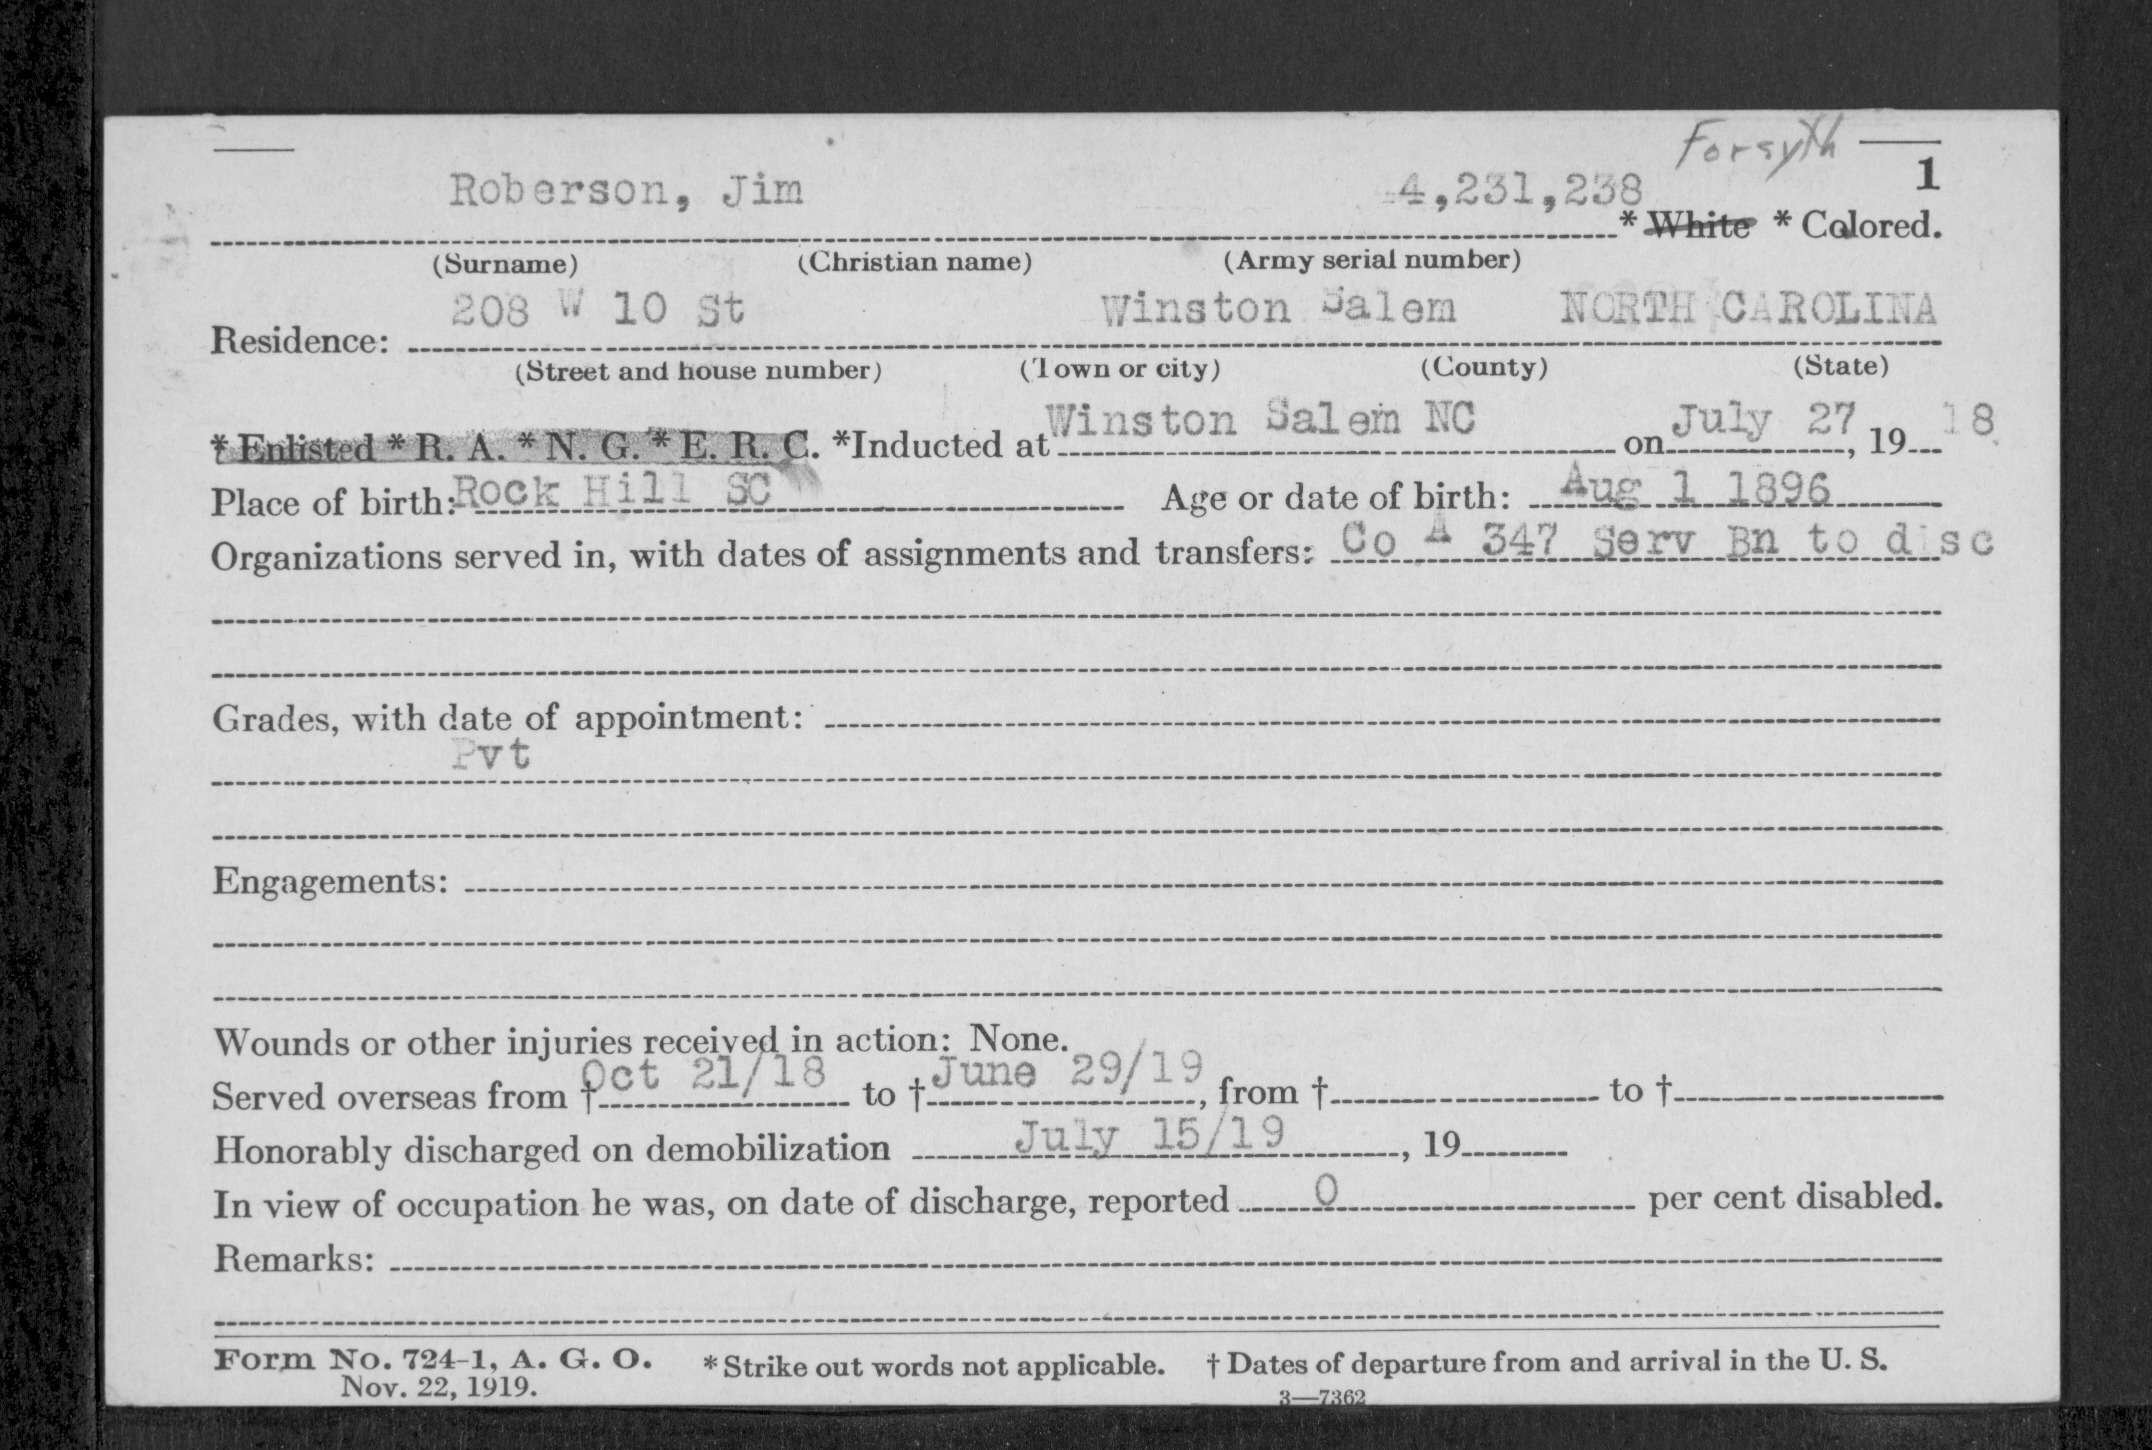 Forsyth
1
Roberson, Jim 4,231,238 * White * Colored.
(Surname) (Christian name) (Army serial number)
208 W 10 St Winston Salem NORTH CAROLINA
Residence:
(Street and house number) (Town or city) (County) (State)
* Enlisted * R. A. * N. G. * E. R. C. *Inducted at Winston Salem NC on July 27, 19 18
Place of birth: Rock Hill SC Age or date of birth: Aug 1 1896
Organizations served in, with dates of assignments and transfers: Co A 347 Serv Bn to disc
Grades, with date of appointment:
Pvt
Engagements:
Wounds or other injuries received in action: None.
Served overseas from † Oct 21/18 to † June 29/19, from † to †
Honorably discharged on demobilization July 15/19, 19
In view of occupation he was, on date of discharge, reported 0 per cent disabled.
Remarks:
Form No. 724-1, A. G. O. * Strike out words not applicable. † Dates of departure from and arrival in the U. S.
Nov. 22, 1919. 3—7362